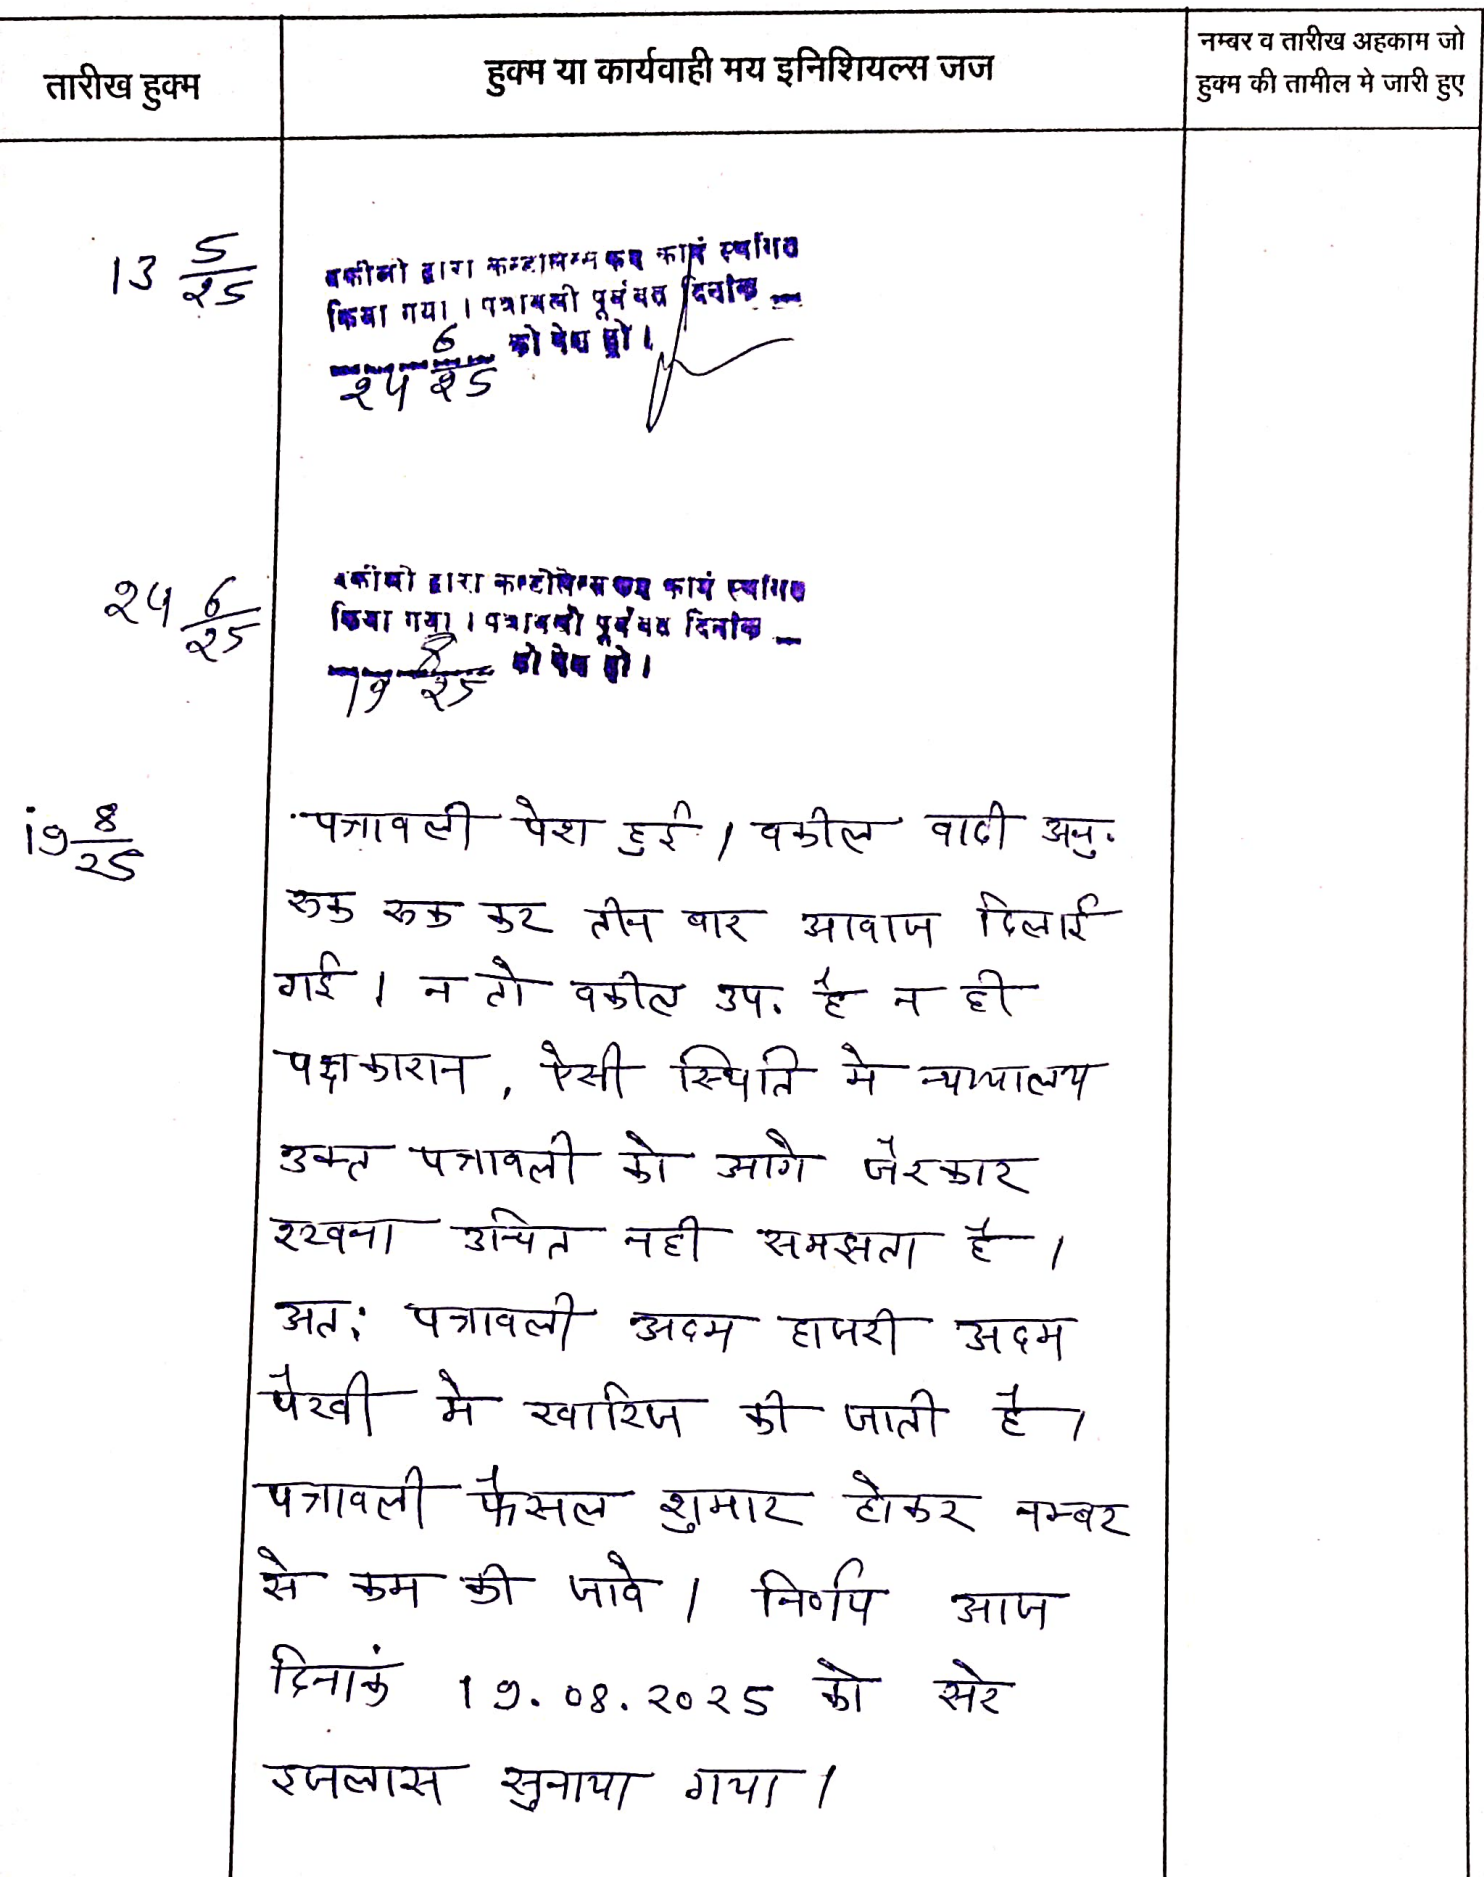 तारीख हुक्म
हुक्म या कार्यवाही मय इनिशियल्स जज
नम्बर व तारीख अहकाम जो
हुक्म की तामील मे जारी हुए
13 5/25
वकीलो द्वारा कार्य स्थगित
किया गया । पत्रावली पूर्ववत दिनांक
24 6/25 को पेश हो ।
24 6/25
वकीलो द्वारा कार्य स्थगित
किया गया । पत्रावली पूर्ववत दिनांक
19 8/25 को पेश हो ।
19 8/25
पत्रावली पेश हुई । वकील वादी अनु.
रुक रुक कर तीन बार आवाज दिलाई
गई । न तो वकील उप. है न ही
पक्षकारान , ऐसी स्थिति मे न्यायालय
उक्त पत्रावली को आगे जैरकार
रखना उचित नही समझता है ।
अतः पत्रावली अदम हाजरी अदम
पैरवी मे खारिज की जाती है ।
पत्रावली फैसल शुमार होकर नम्बर
से कम की जावे । निर्णय आज
दिनाकं 19.08.2025 को सरे
इजलास सुनाया गया ।